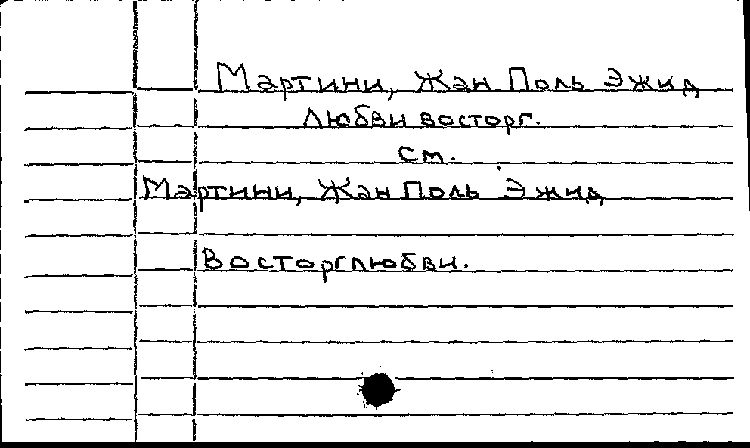 Мартини, Жан Поль Эжид
Любви восторг.
см.
Мартини, Жан Поль Эжид
Восторг любви.